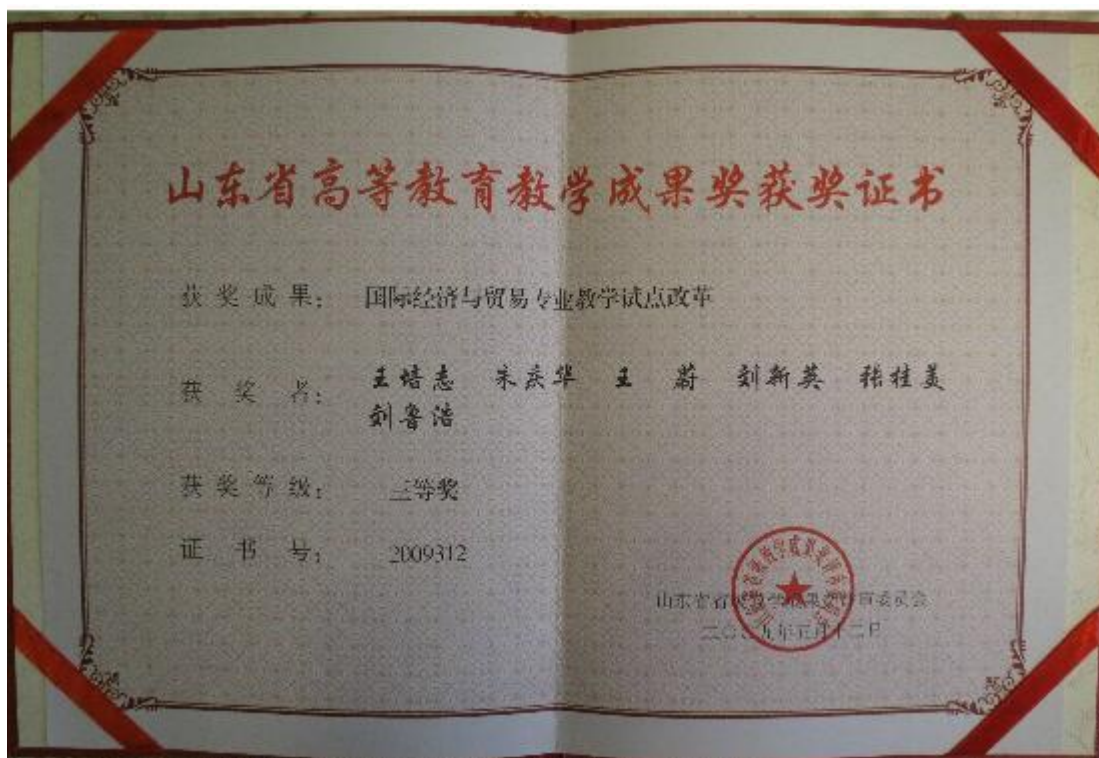 山东省高等教育教学成果奖获奖证书
获奖成果： 国际经济与贸易专业教学试点改革
获 奖 者： 王培志 朱庆华 王 蔚 刘新英 张桂美
刘鲁浩
获奖等级： 三等奖
证 书 号： 2009312
山东省省级教学成果奖评审委员会
二〇〇九年五月十二日